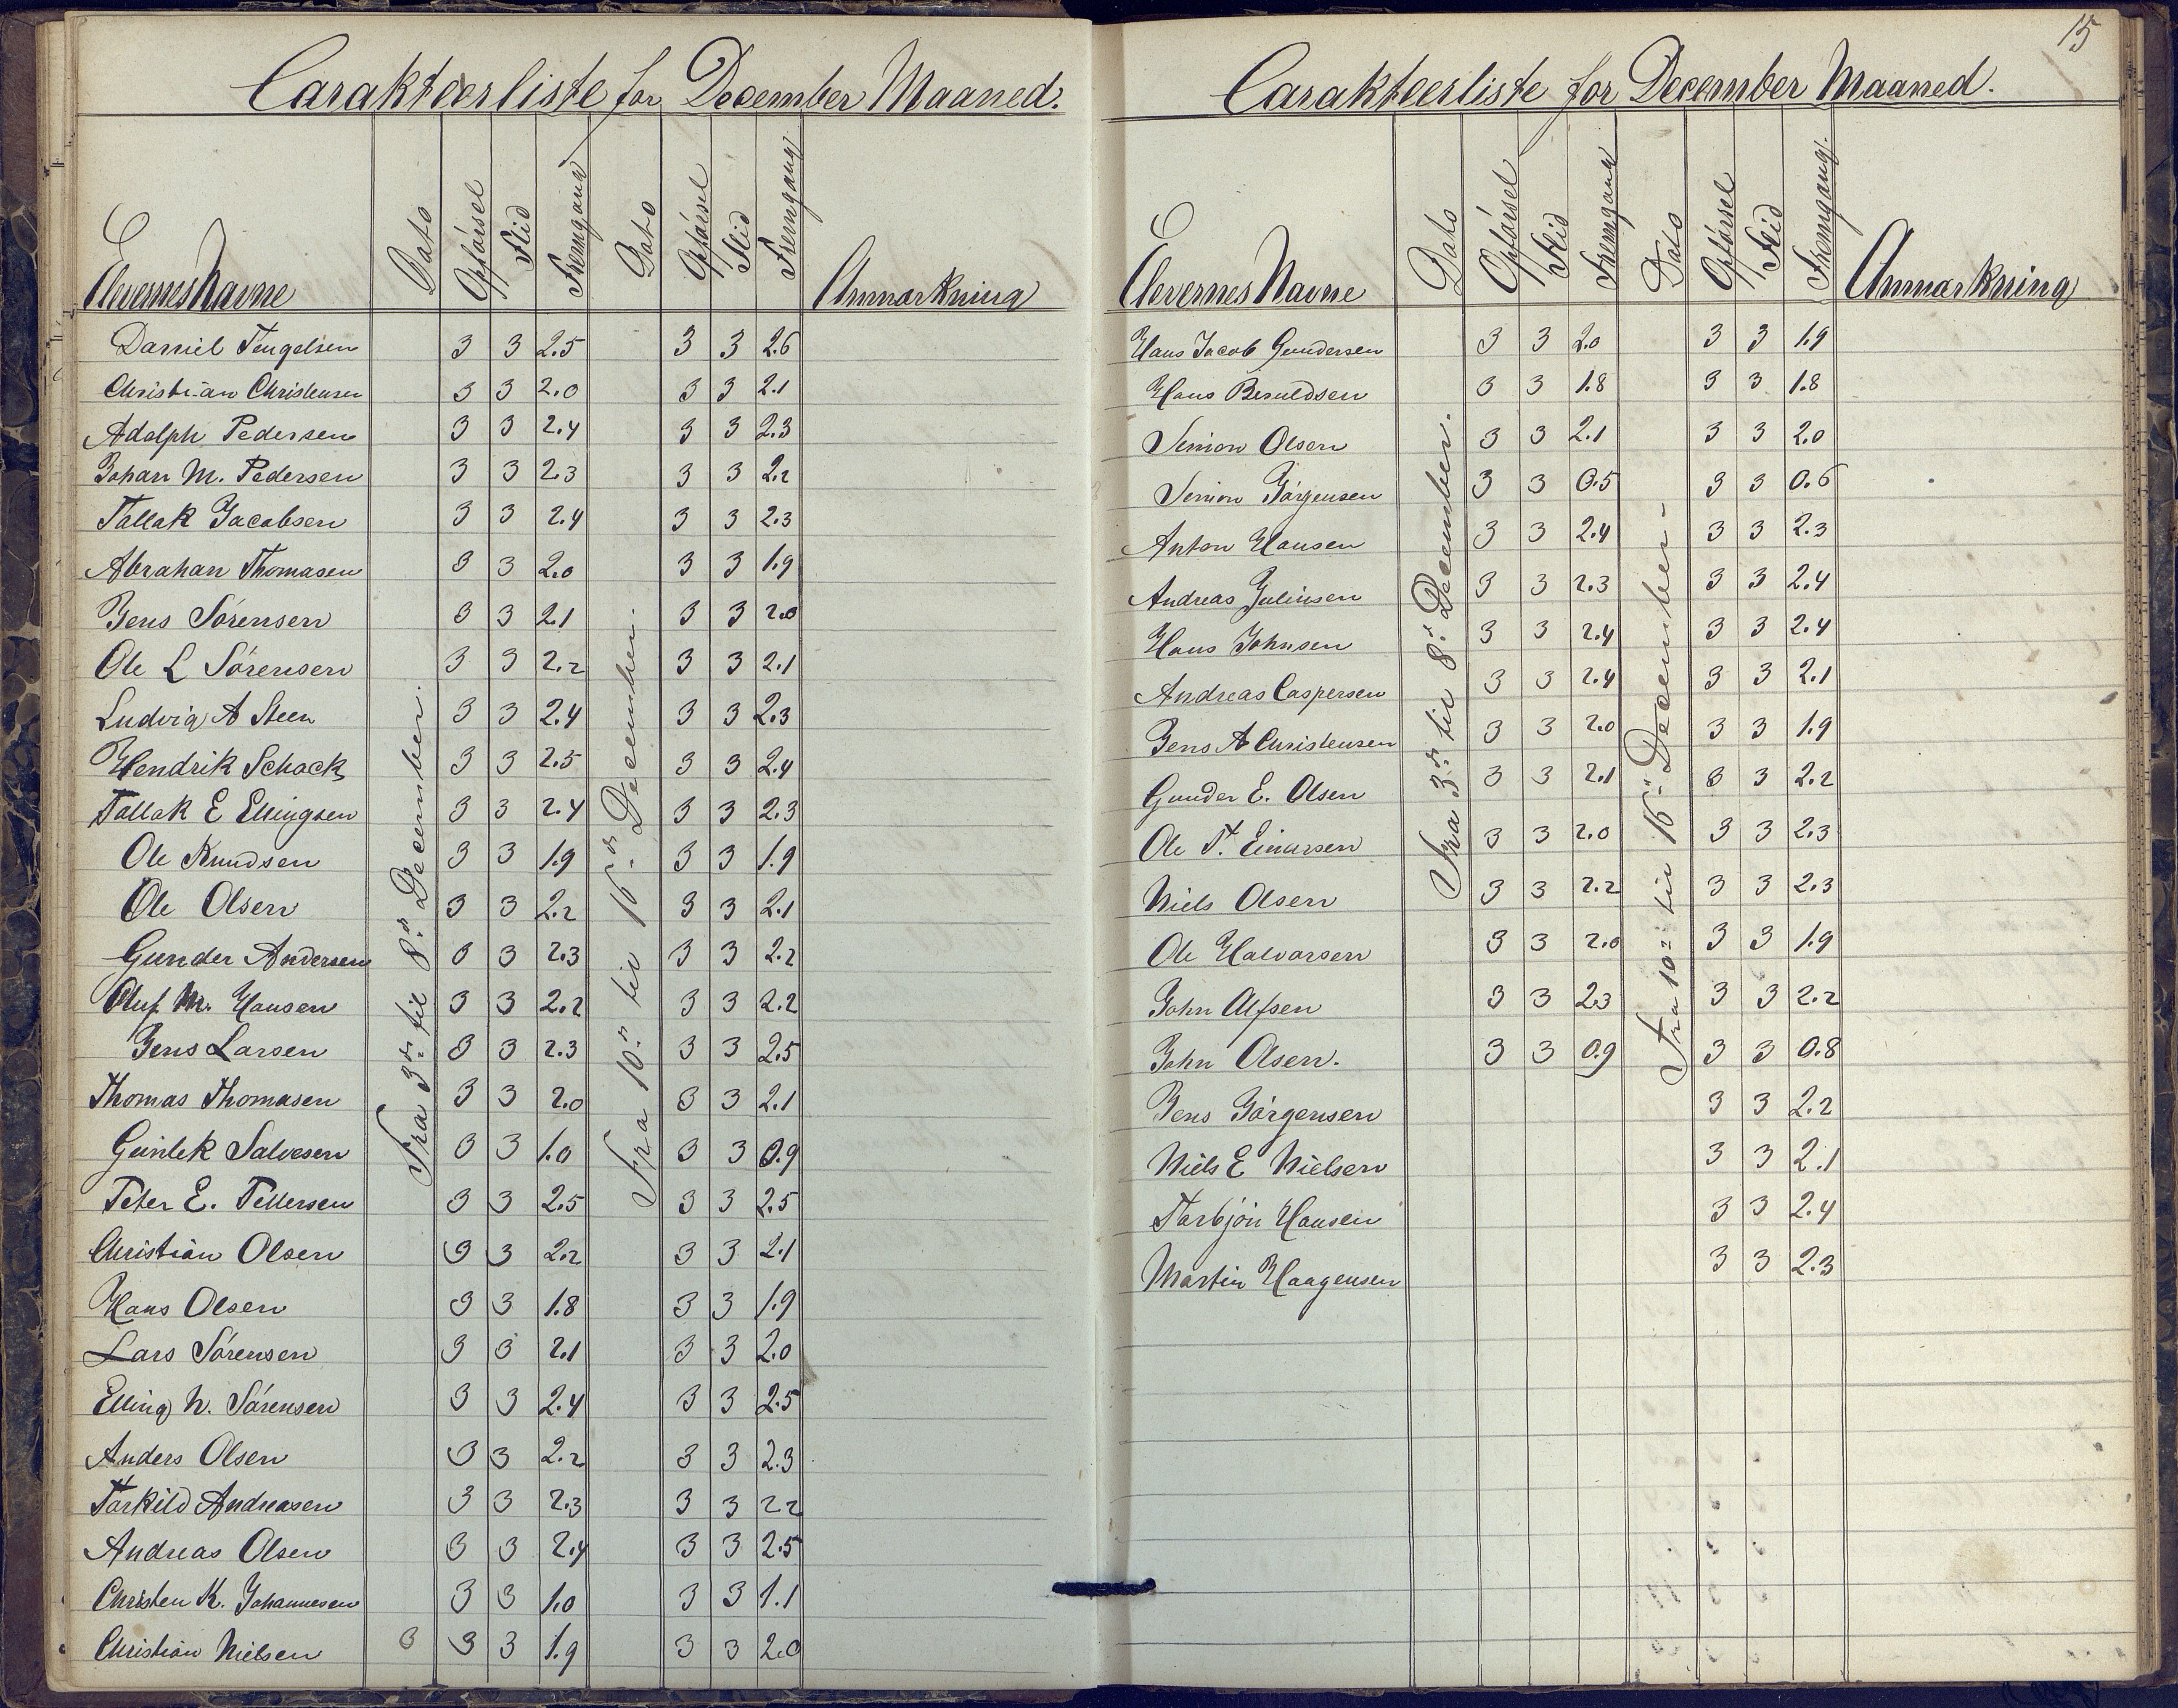 Carakteerliste for December Maaned.
Elevernes Navne Dato Opførsel Flid Fremgang Dato Opførsel Flid Fremgang Anmærkning
Fra 3die til 8de December.
Fra 10de til 16de December.
Daniel Tengelsen 3 3 2.5 3 3 2.6
Christian Christensen 3 3 2.0 3 3 2.1
Adolph Pedersen 3 3 2.4 3 3 2.3
Johan M. Pedersen 3 3 2.3 3 3 2.2
Tallak Jacobsen 3 3 2.4 3 3 2.3
Abrahan Thomasen 3 3 2.0 3 3 1.9
Jens Sørensen 3 3 2.1 3 3 2.0
Ole L Sørensen 3 3 2.2 3 3 2.1
Ludvig A Steen 3 3 2.4 3 3 2.3
Hendrik Schack 3 3 2.5 3 3 2.4
Tallak E Ellingsen 3 3 2.4 3 3 2.3
Ole Knudsen 3 3 1.9 3 3 1.9
Ole Olsen 3 3 2.2 3 3 2.1
Gunder Andersen 3 3 2.3 3 3 2.2
Oluf M. Hansen 3 3 2.2 3 3 2.2
Jens Larsen 3 3 2.3 3 3 2.5
Thomas Thomasen 3 3 2.0 3 3 2.1
Gunlek Salvesen 3 3 1.0 3 3 0.9
Peter E. Pettersen 3 3 2.5 3 3 2.5
Christian Olsen 3 3 2.2 3 3 2.1
Hans Olsen 3 3 1.8 3 3 1.9
Lars Sørensen 3 3 2.1 3 3 2.0
Elling N. Sørensen 3 3 2.4 3 3 2.5
Anders Olsen 3 3 2.2 3 3 2.3
Tarkild Andreasen 3 3 2.3 3 3 2.2
Andreas Olsen 3 3 2.4 3 3 2.5
Christen K. Johannesen 3 3 1.0 3 3 1.1
Christian Nielsen 3 3 3 1.9 3 3 2.0
15
Carakteerliste for December Maaned.
Elevernes Navne Dato Opførsel Flid Fremgang Dato Opførsel Flid Fremgang. Anmærkning
Fra 3die til 8de December.
Fra 10de til 16de December.
Hans Jacob Gundersen 3 3 2.0 3 3 1.9
Hans Beruldsen 3 3 1.8 3 3 1.8
Simon Olsen 3 3 2.1 3 3 2.0
Simon Jørgensen 3 3 0.5 3 3 0.6
Anton Hansen 3 3 2.4 3 3 2.3
Andreas Juliusen 3 3 2.3 3 3 2.4
Hans Johnsen 3 3 2.4 3 3 2.4
Andreas Caspersen 3 3 2.4 3 3 2.1
Jens A Christensen 3 3 2.0 3 3 1.9
Gunder E. Olsen 3 3 2.1 3 3 2.2
Ole T. Einarsen 3 3 2.0 3 3 2.3
Niels Olsen 3 3 2.2 3 3 2.3
Ole Halvorsen 3 3 2.0 3 3 1.9
John Alfsen 3 3 2.3 3 3 2.2
John Olsen. 3 3 0.9 3 3 0.8
Jens Jørgensen 3 3 2.2
Niels E Nielsen 3 3 2.1
Tarbjøn Hansen 3 3 2.4
Martin Haagensen 3 3 2.3